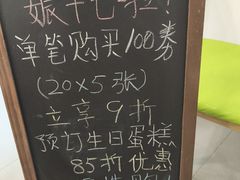 单笔购买100券
(20×5张)
立享9折
预订生日蛋糕
85折优惠